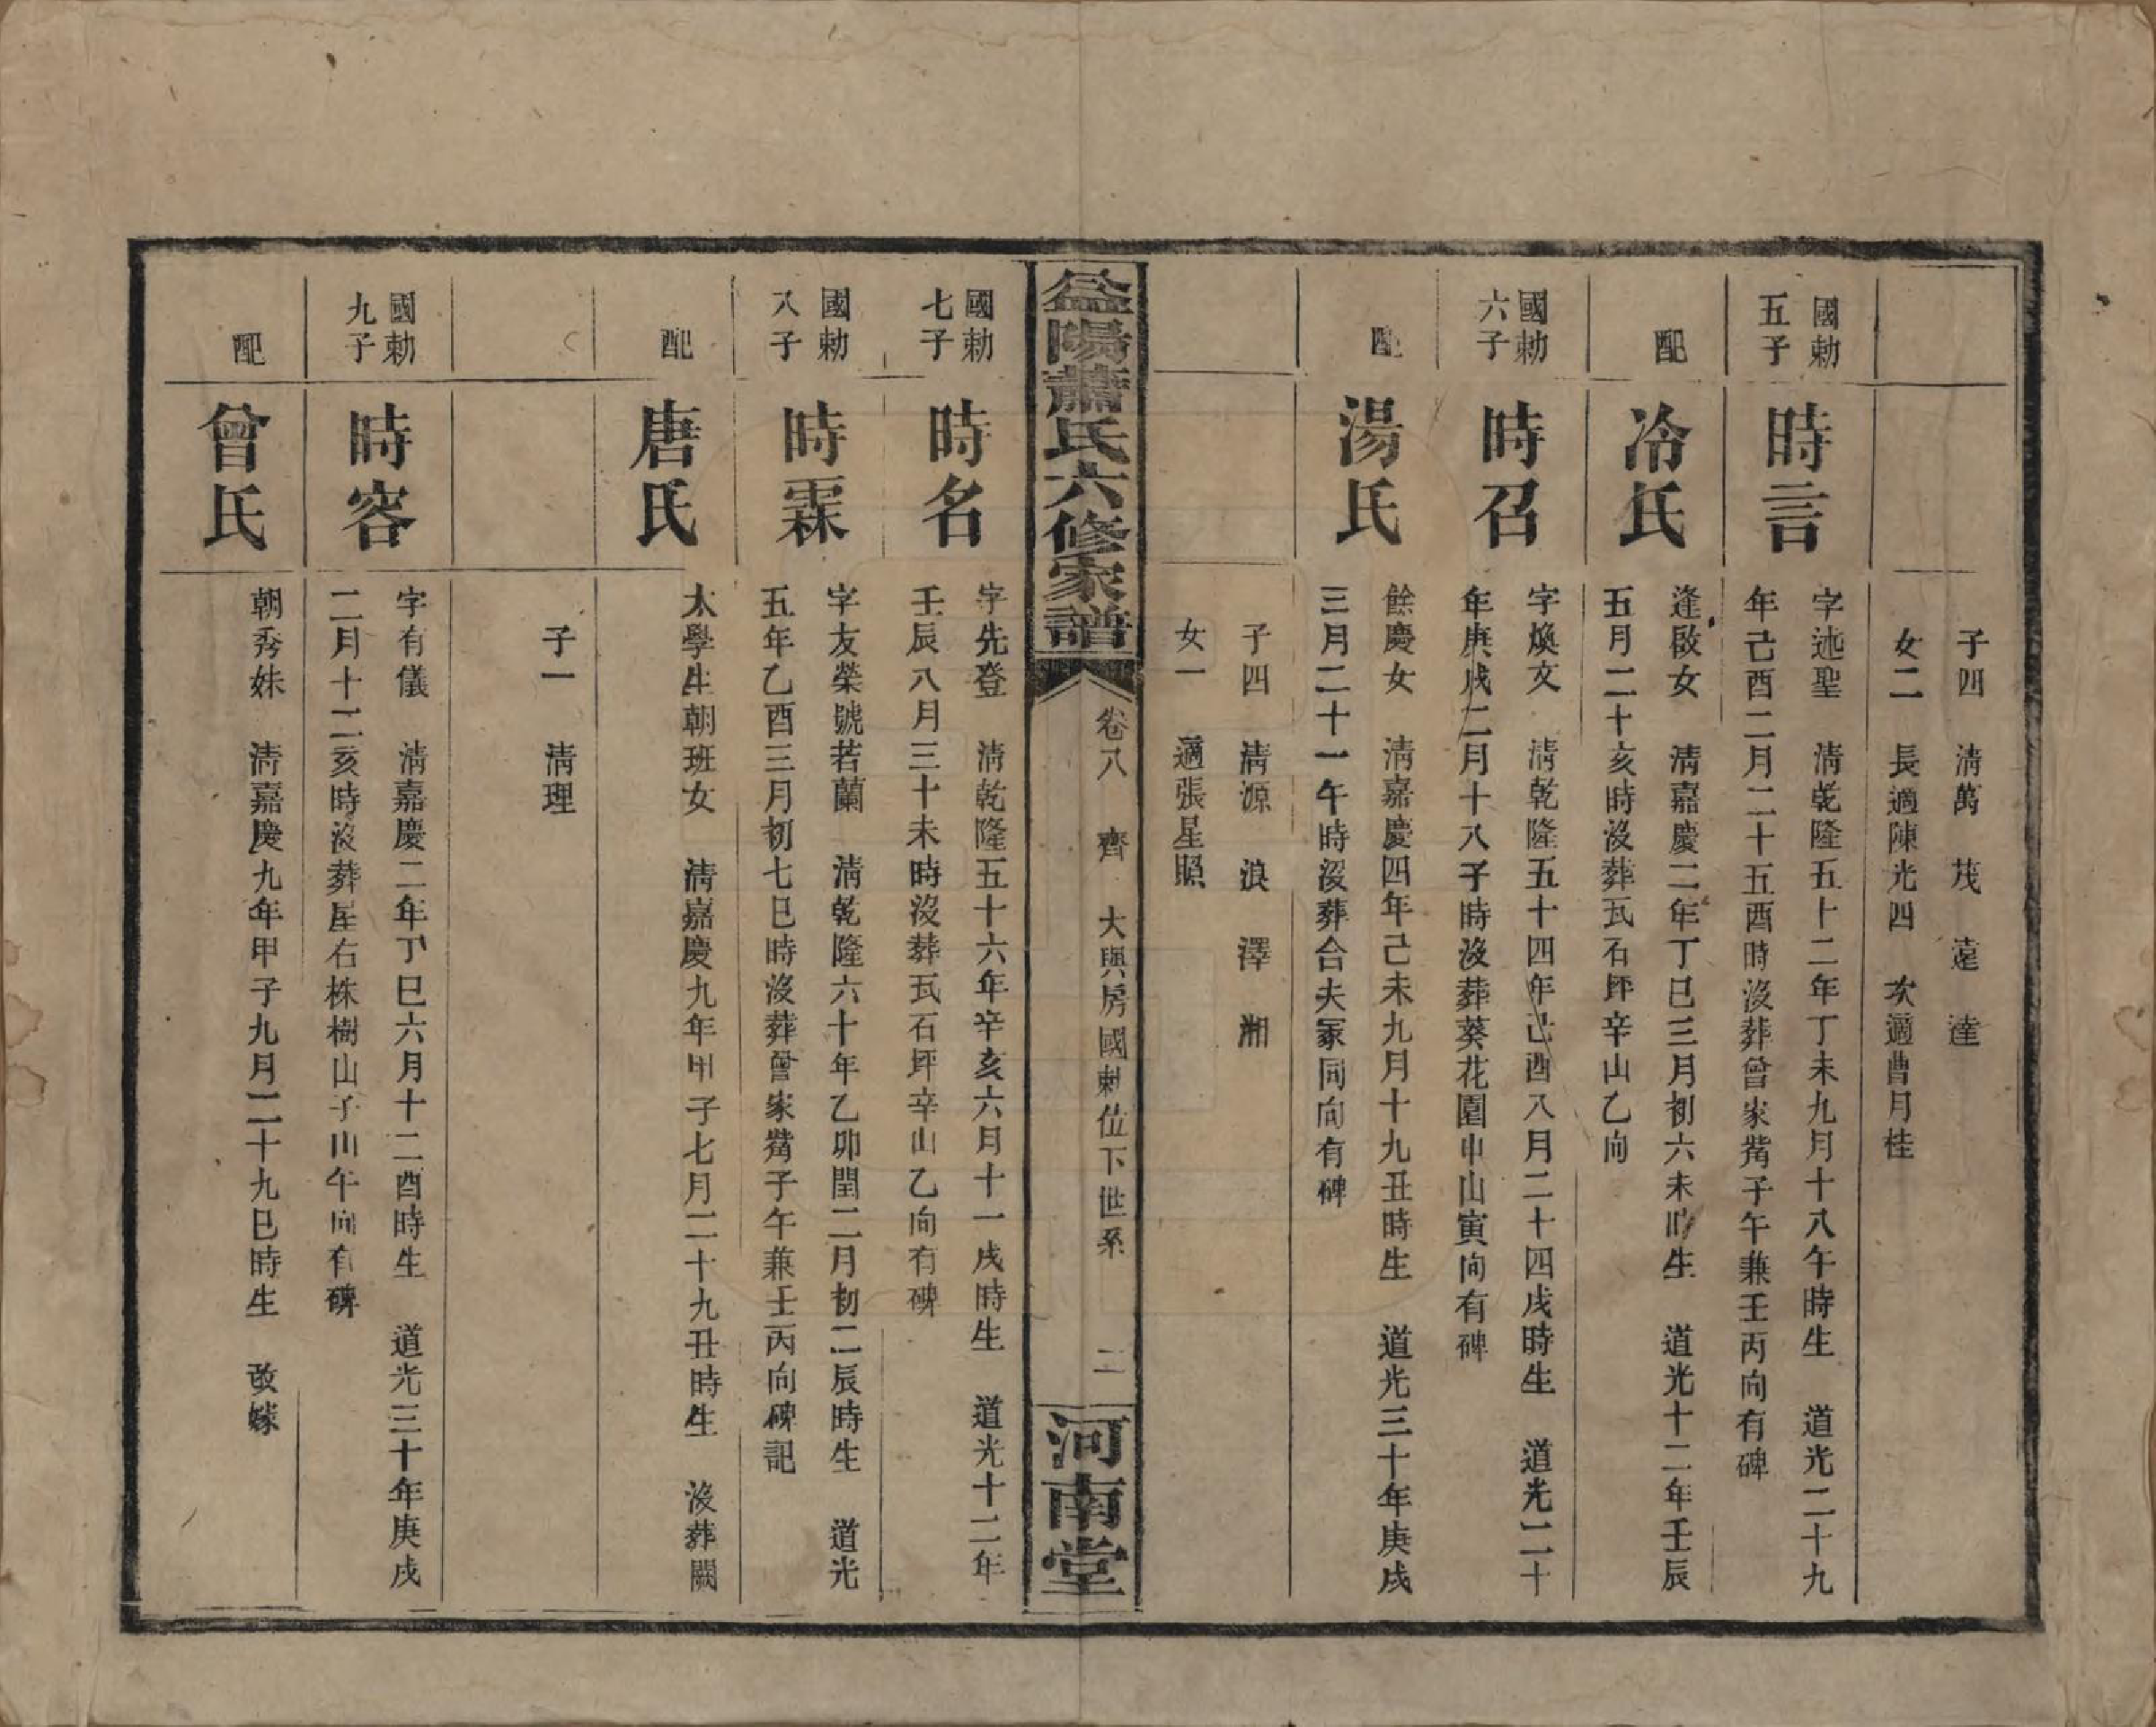 子四　淸萬　茂　遠　達
女二　長適陳光四　次適曹月桂
國勅
五子
時言
字述聖　淸乾隆五十二年丁未九月十八午時生　道光二十九
年己酉二月二十五酉時沒葬曾家嘴子午兼壬丙向有碑
配
冷氏
逢啟女　淸嘉慶二年丁巳三月初六未時生　道光十二年壬辰
五月二十亥時沒葬瓦石坪辛山乙向
國勅
六子
時召
字煥文　淸乾隆五十四年己酉八月二十四戌時生　道光二十
年庚戌二月十八子時沒葬葵花園申山寅向有碑
配
湯氏
餘慶女　淸嘉慶四年己未九月十九丑時生　道光三十年庚戌
三月二十一午時沒葬合夫冢同向有碑
子四　淸源　浪　澤　湘
女一　適張星照
益陽蕭氏六修家譜
卷八　齊　大興房國勅位下世系　二
河南堂
國勅
七子
時名
字先登　淸乾隆五十六年辛亥六月十一戌時生　道光十二年
壬辰八月三十未時沒葬瓦石坪辛山乙向有碑
國勅
八子
時霖
字友榮號若蘭　淸乾隆六十年乙卯閏二月初二辰時生　道光
五年乙酉三月初七巳時沒葬曾家嘴子午兼壬丙向碑記
配
唐氏
太學生朝班女　淸嘉慶九年甲子七月二十九丑時生　沒葬闕
子一　淸理
國勅
九子
時容
字有儀　淸嘉慶二年丁巳六月十二酉時生　道光三十年庚戌
二月十二亥時沒葬屋右株樹山子山午向有碑
配
曾氏
朝秀妹　淸嘉慶九年甲子九月二十九巳時生　改嫁